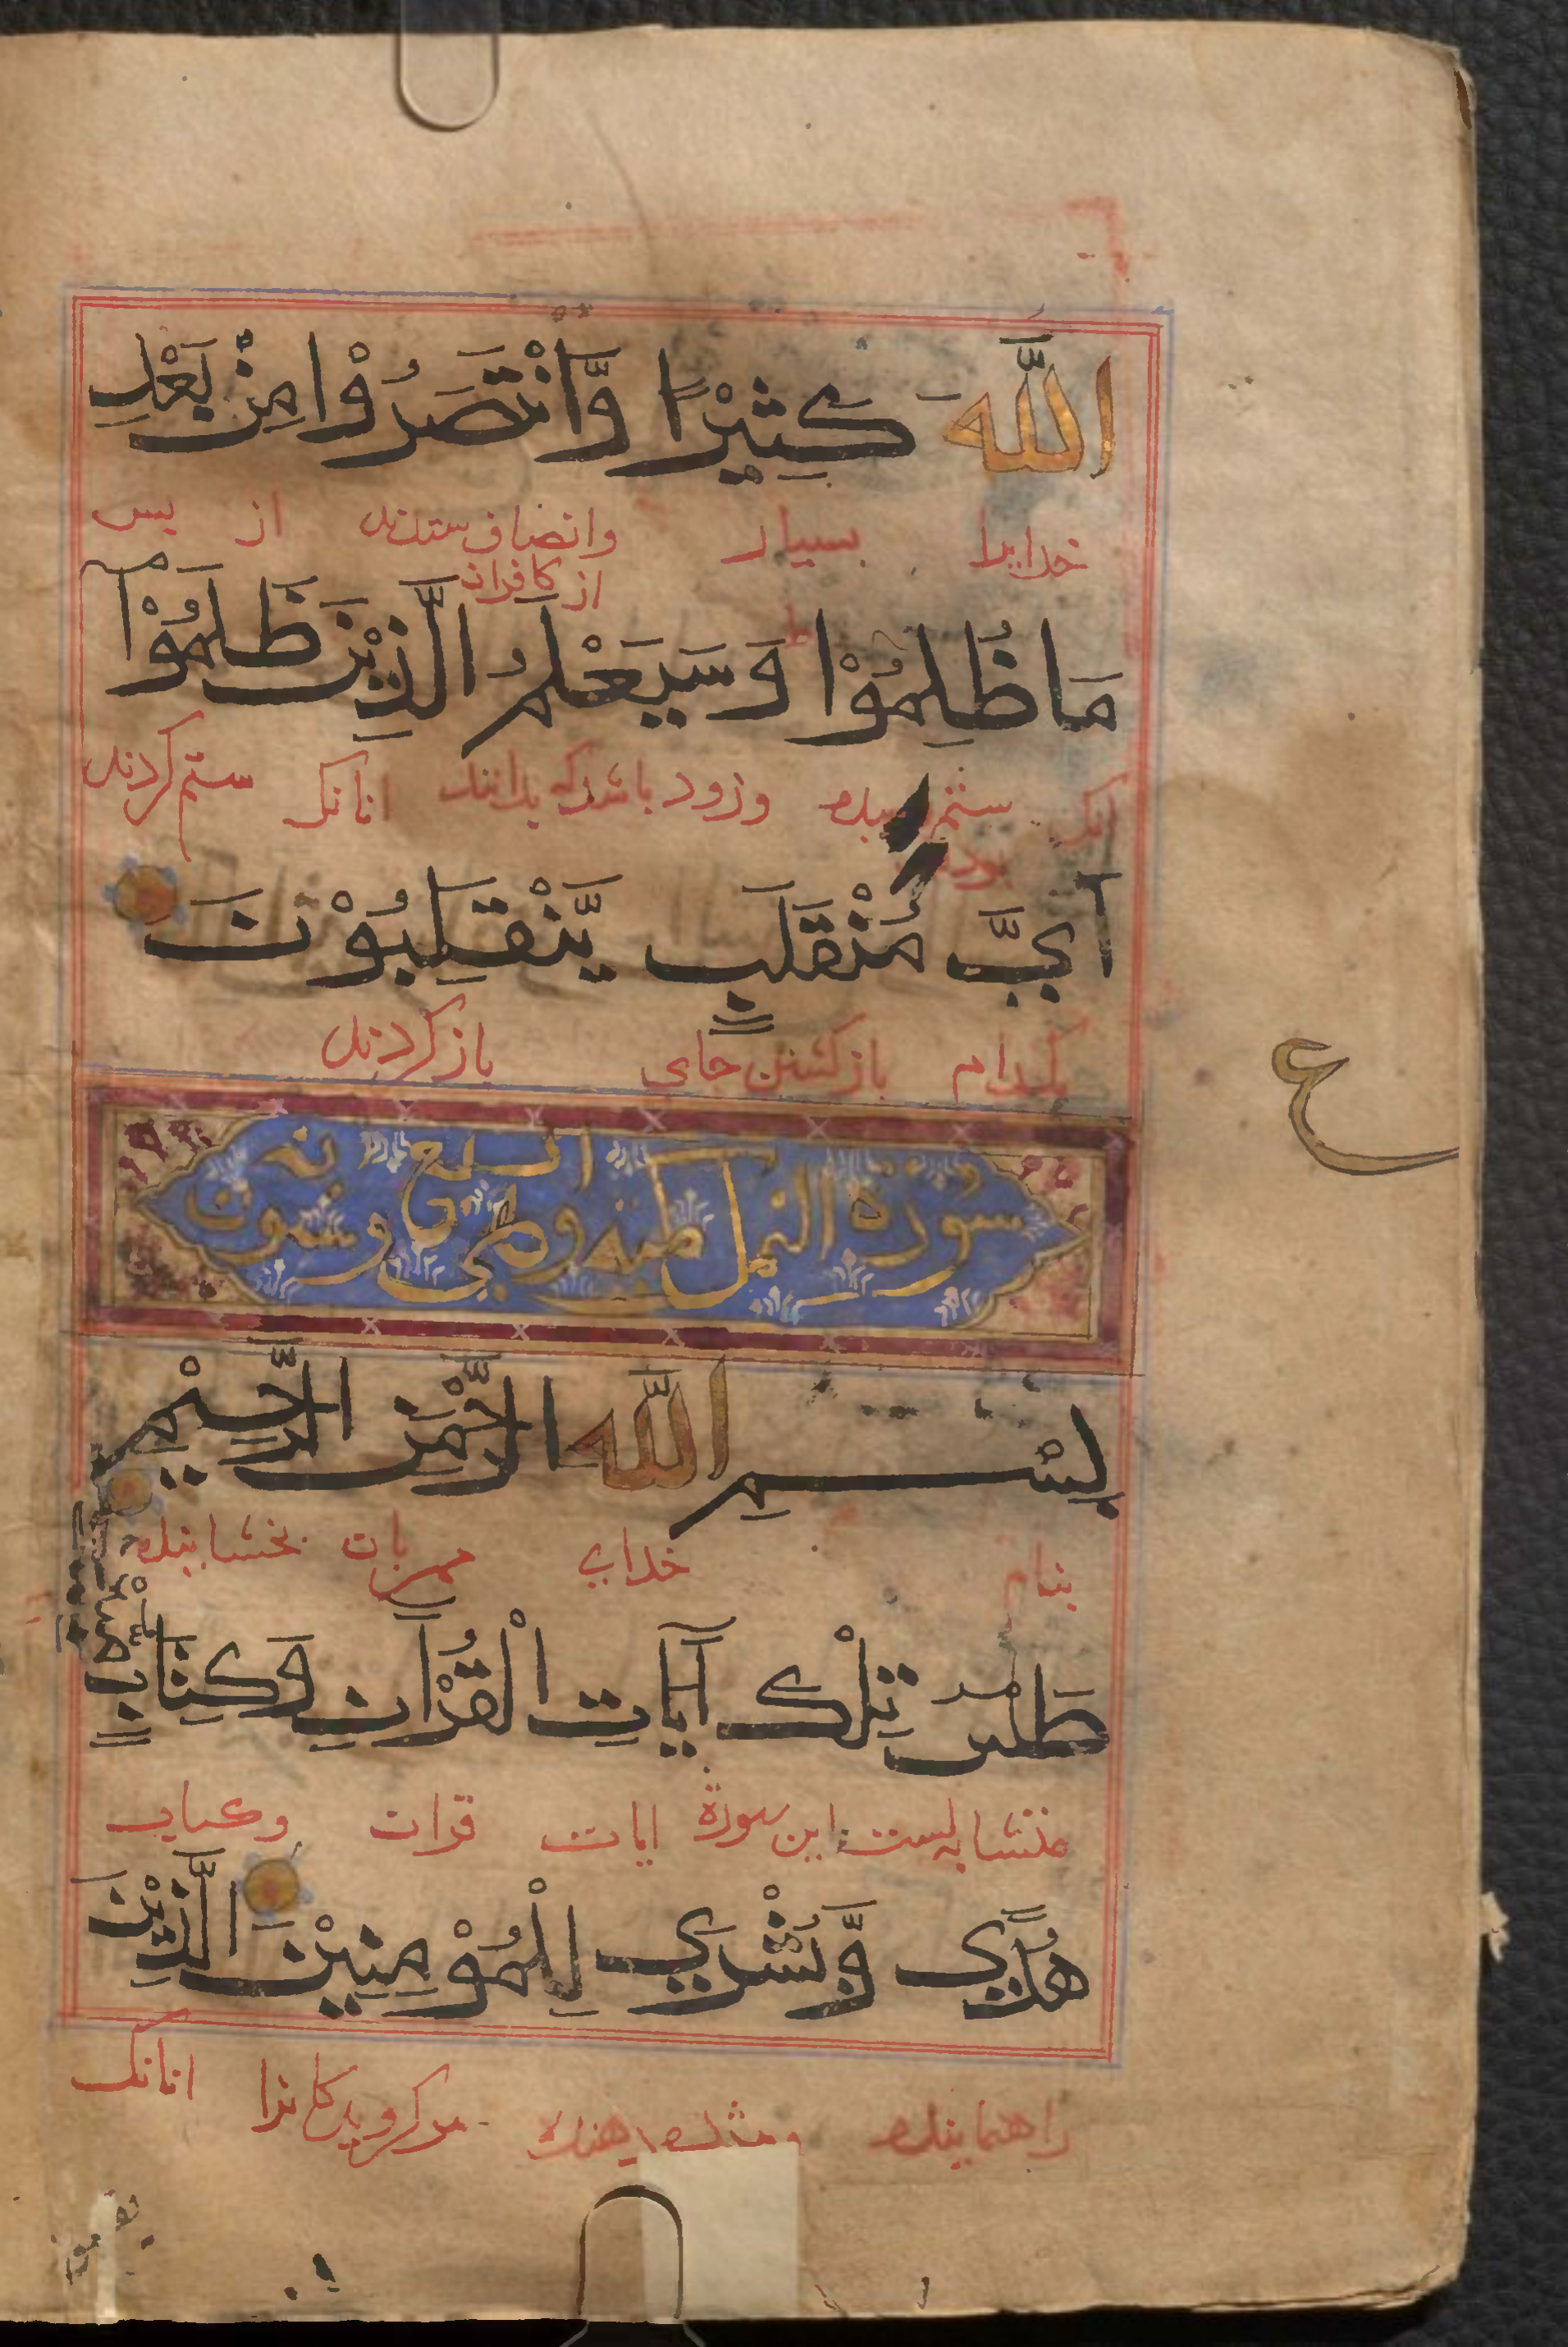 اللهَ كَثِيْرًا وَّانْتَصَرُوْا مِنْ بَعْدِ
خدایرا بسیار وانضاف ستدند از پس
از کافران
مَا ظُلِمُوْا وَسَيَعْلَمُ الَّذِيْنَ ظَلَمُوْا
انک وزود باشد که بدانند انانک ستم کردند
اَيَّ مُنْقَلَبٍ يَّنْقَلِبُوْنَ
بکدام بازکشتن جای بازکردند
ع
سورة النمل
بِسْمِ اللهِ الرَّحْمٰنِ الرَّحِيْمِ
بنام خدای مهربان بخشاینده
طس تِلْكَ آيَاتُ الْقُرْآنِ وَكِتَابٍ مُّبِيْنٍ
متشابه است این سورة ایات قران وکتاب
هُدًى وَّبُشْرٰى لِلْمُؤْمِنِيْنَ الَّذِيْنَ
راهنماینده ومژده دهنده مرکرویدکانرا انانک